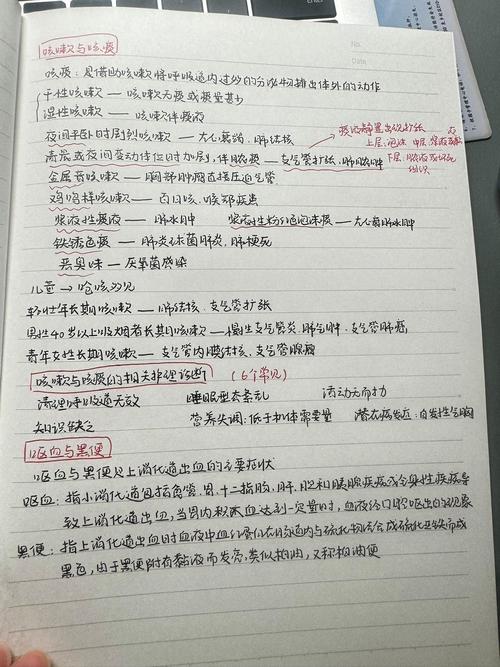 No.
Date
咳嗽与咳痰
咳痰：是借助咳嗽将呼吸道内过多的分泌物排出体外的动作
干性咳嗽 — 咳嗽无痰或痰量甚少
湿性咳嗽 — 咳嗽伴痰液
夜间平卧时剧烈咳嗽 — 左心衰竭、肺结核
痰液静置出现分层
上层：泡沫 中层：浆液或黏
清晨或夜间变动体位时加剧，伴脓痰 — 支气管扩张、肺脓肿
下层：脓液或坏死
组织
金属音咳嗽 — 胸部肿瘤直接压迫气管
鸡鸣样咳嗽 — 百日咳、喉部疾患
浆液性痰液 — 肺水肿 浆液性粉红色泡沫痰 — 左心衰肺水肿
铁锈色痰 — 肺炎球菌肺炎，肺梗死
恶臭味 — 厌氧菌感染
儿童 → 呛咳多见
青壮年长期咳嗽 — 肺结核、支气管扩张
男性40岁以上吸烟者长期咳嗽 — 慢性支气管炎、肺气肿、支气管肺癌
青年女性长期咳嗽 — 支气管内膜结核、支气管腺瘤
咳嗽与咳痰的相关护理诊断 (6个常见)
清理呼吸道无效 睡眠型态紊乱 活动无耐力
知识缺乏 营养失调：低于机体需要量 潜在并发症：自发性气胸
呕血与黑便
呕血与黑便是上消化道出血的主要症状
呕血：指小消化道包括食管、胃、十二指肠、肝、胆和胰腺疾病或全身性疾病导
致上消化道出血，当胃内积血达到一定量时，血液经口腔呕出的现象
黑便：指上消化道出血时血液中血红蛋白在肠道内与硫化物结合成硫化亚铁而成
黑色，由于黑便附有黏液而发亮，类似柏油，又称柏油便